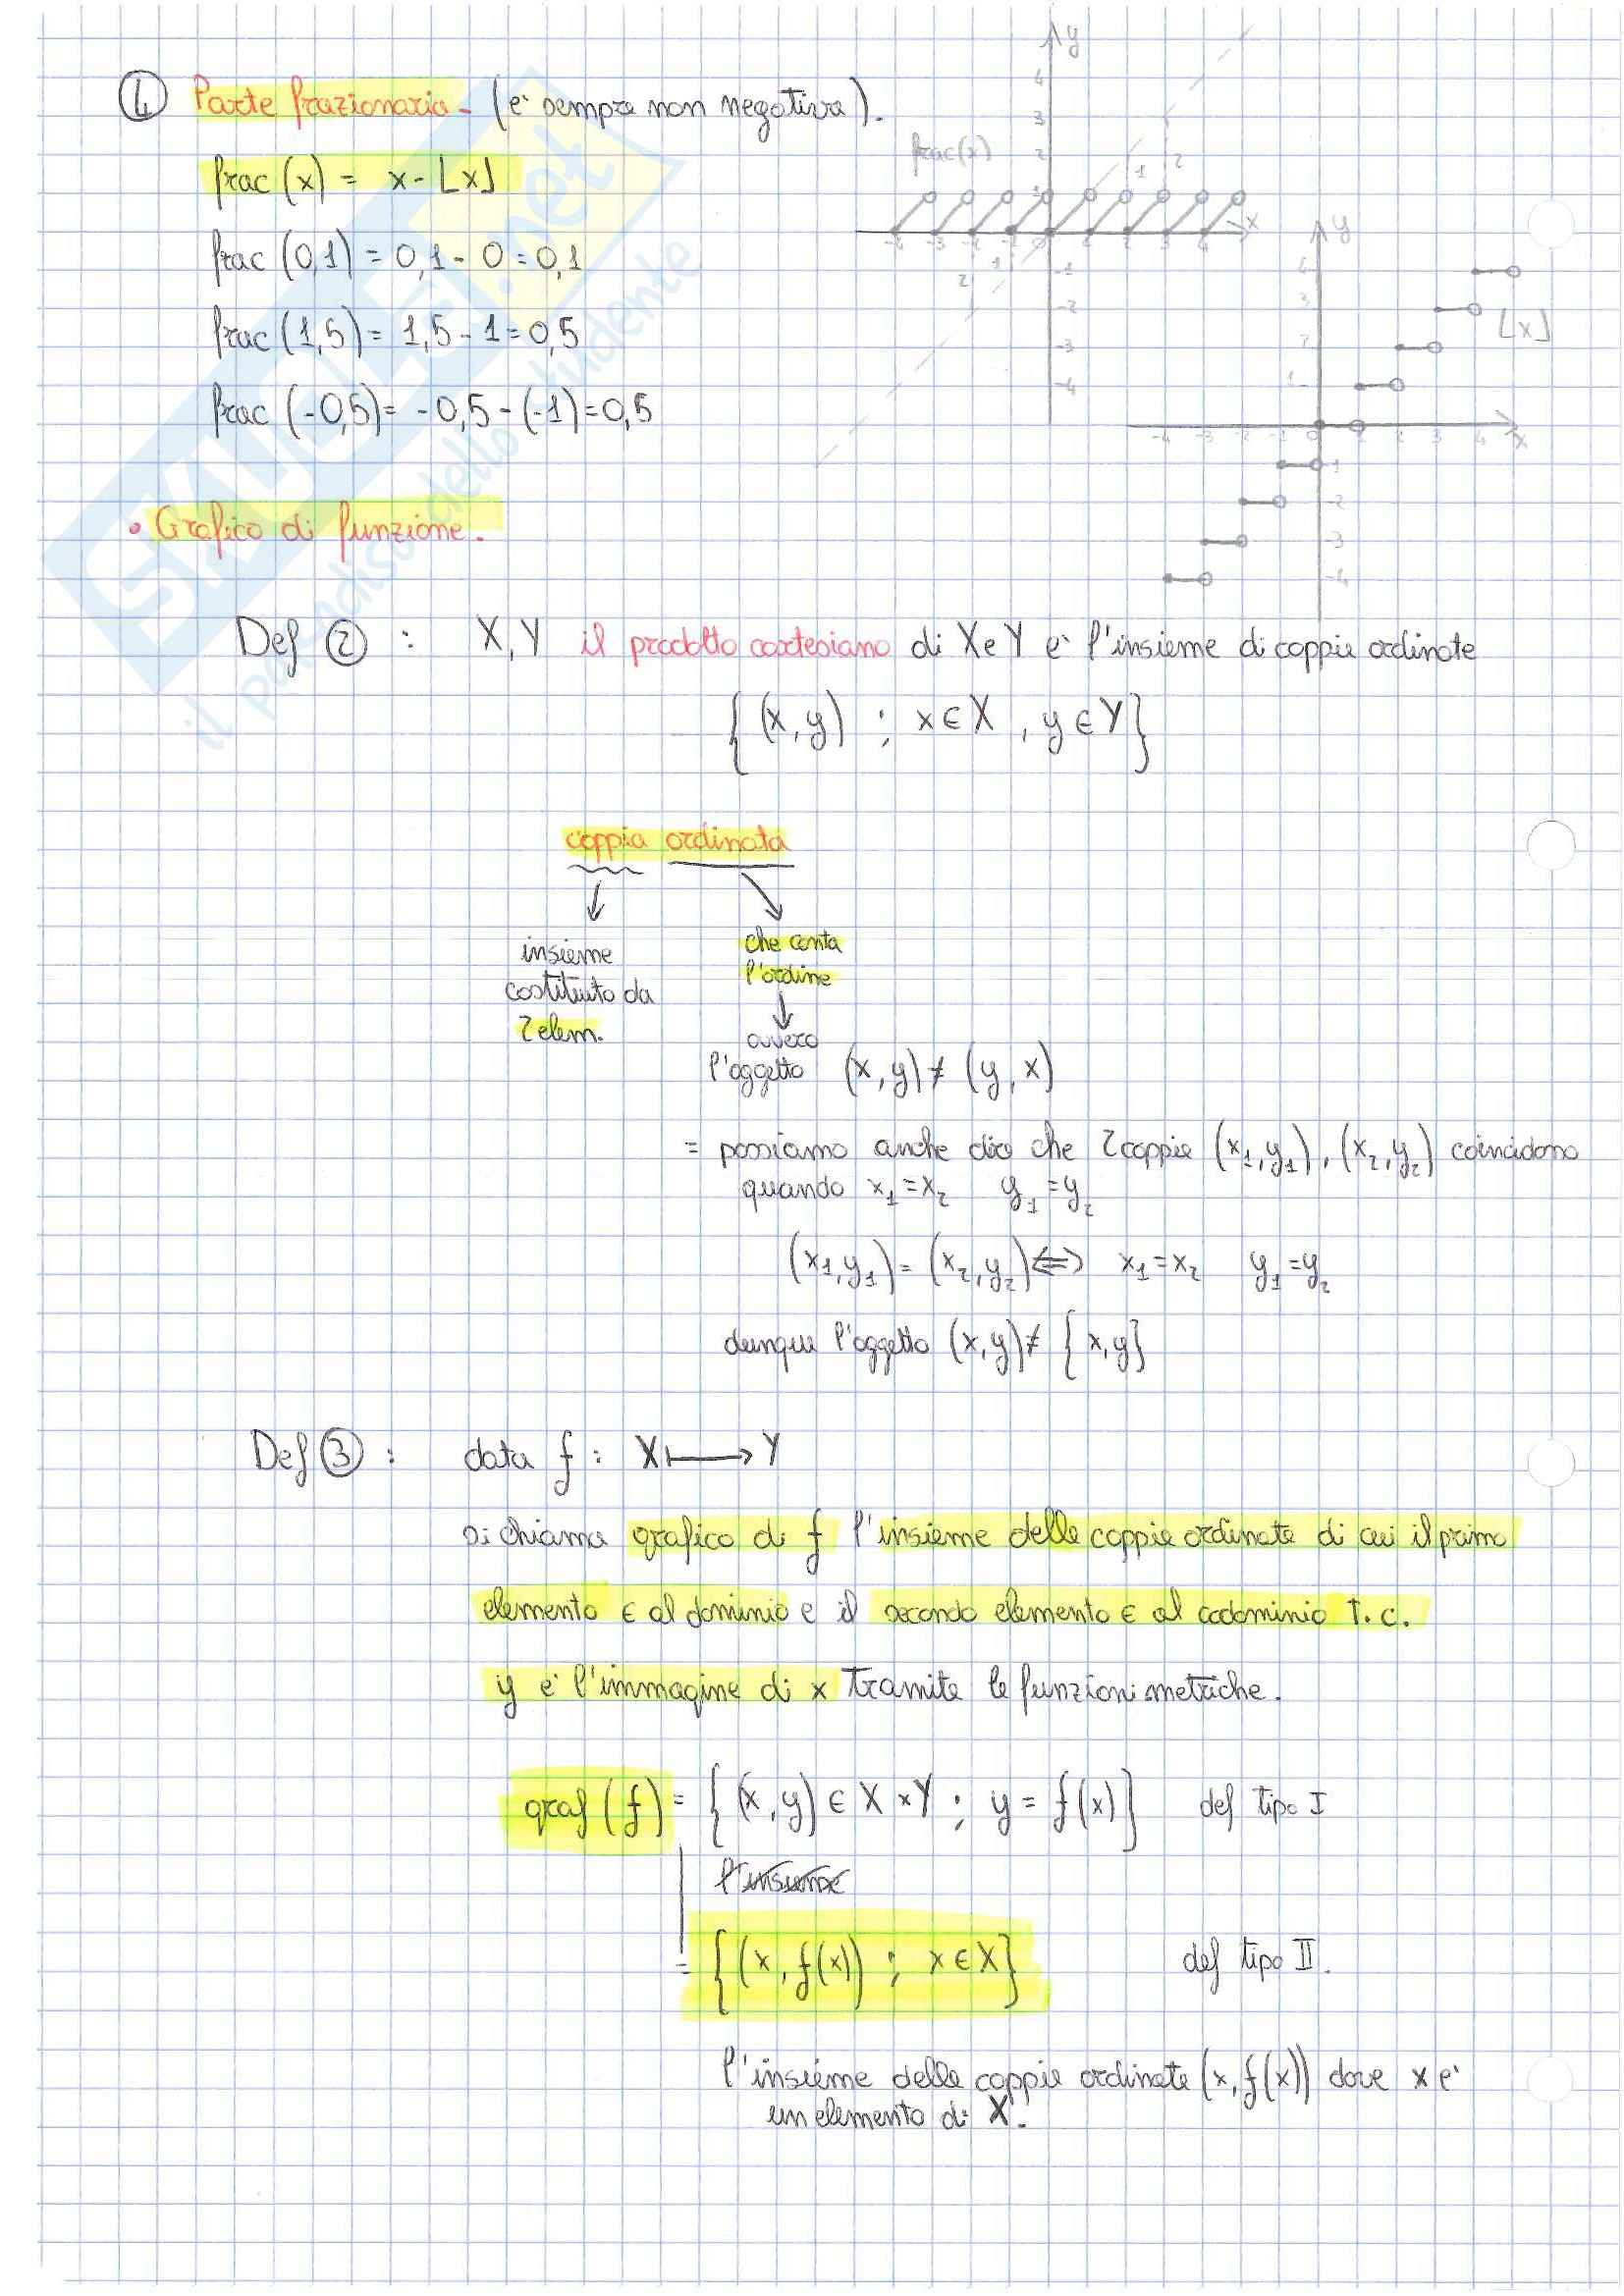 ④ Parte frazionaria - (è sempre non negativa).
frac (x) = x - ⌊x⌋
frac (0,1) = 0,1 - 0 = 0,1
frac (1,5) = 1,5 - 1 = 0,5
frac (-0,5) = -0,5 - (-1) = 0,5
y
4
3
2
1
frac(x)
-4 -3 -2 -1 0 1 2 3 4 x
-1
-2
-3
-4
y
4
3
2
1
⌊x⌋
-4 -3 -2 -1 0 1 2 3 4 x
-1
-2
-3
-4
SKUOLA.net
il paradiso dello studente
• Grafico di funzione.
Def ② : X, Y il prodotto cartesiano di X e Y è l'insieme di coppie ordinate
{ (x, y) ; x ∈ X , y ∈ Y }
coppia ordinata
insieme
costituito da
2 elem.
che conta
l'ordine
ovvero
l'oggetto (x, y) ≠ (y, x)
= possiamo anche dire che 2 coppie (x₁, y₁), (x₂, y₂) coincidono
quando x₁ = x₂ y₁ = y₂
(x₁, y₁) = (x₂, y₂) ⟺ x₁ = x₂ y₁ = y₂
dunque l'oggetto (x, y) ≠ { x, y }
Def ③ : data f : X ⟼ Y
si chiama grafico di f l'insieme delle coppie ordinate di cui il primo
elemento ∈ al dominio e il secondo elemento ∈ al codominio t.c.
y è l'immagine di x tramite le funzioni metriche.
graf (f) = { (x, y) ∈ X × Y ; y = f(x) } def tipo I
l'insieme
= { (x, f(x)) ; x ∈ X } def tipo II.
l'insieme delle coppie ordinate (x, f(x)) dove x è
un elemento di X.